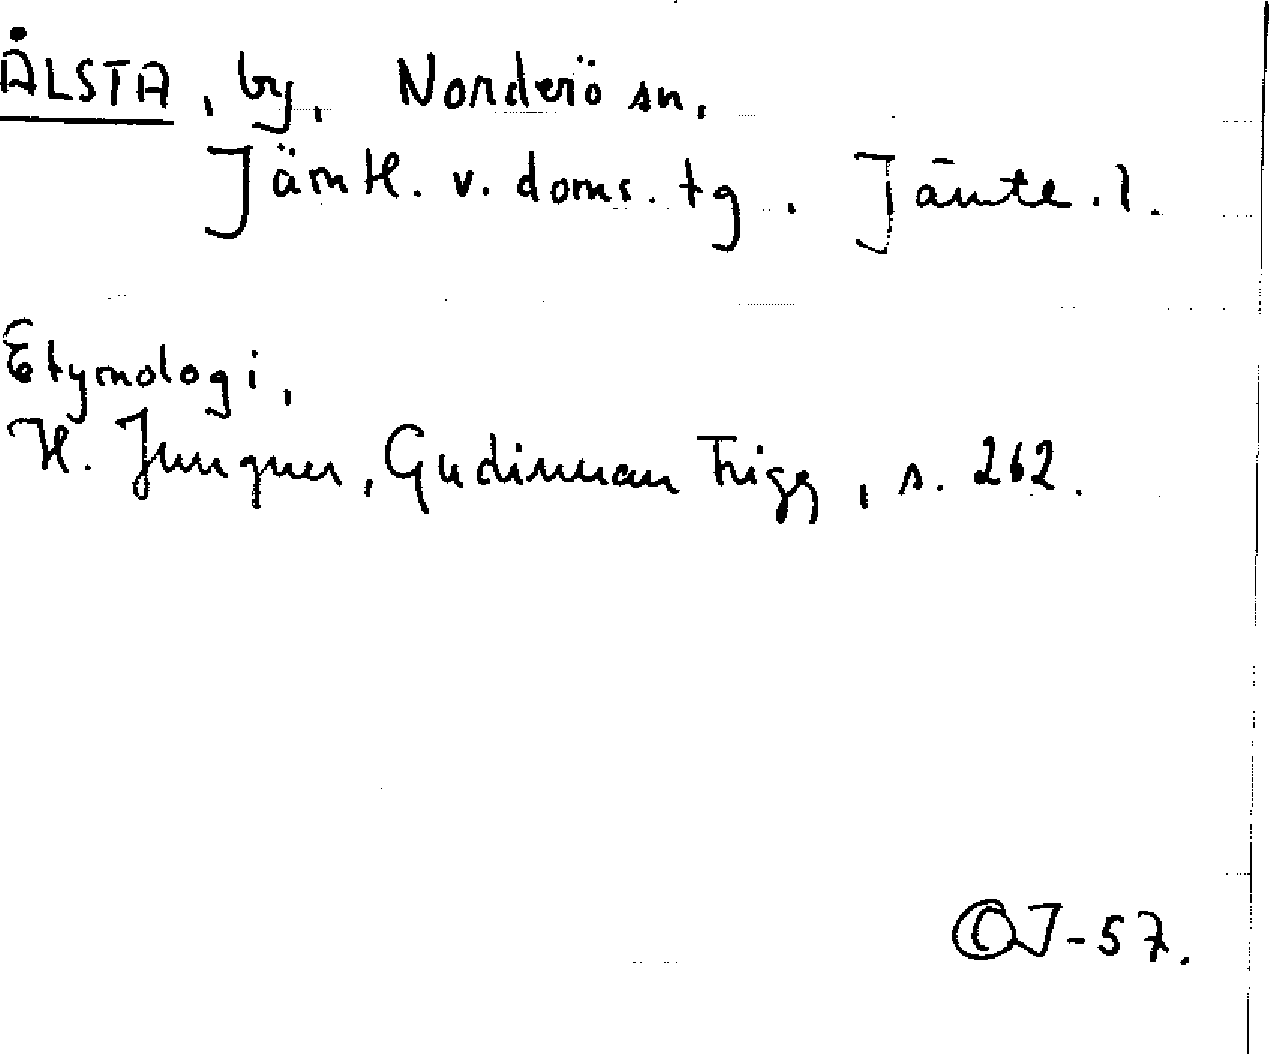 ÅLSTA, by, Norderö sn,
Jämtl. v. doms. tg. Jämtl. l.
Etymologi,
H. Jungner, Gudinnan Frigg, s. 262.
OJ-57.